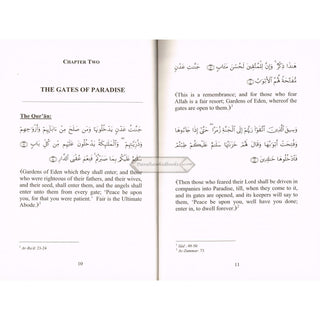 CHAPTER TWO
THE GATES OF PARADISE
The Qur'ān:
جَنَّٰتُ عَدْنٍ يَدْخُلُونَهَا وَمَن صَلَحَ مِنْ ءَابَآئِهِمْ وَأَزْوَٰجِهِمْ
وَذُرِّيَّٰتِهِمْ وَٱلْمَلَٰٓئِكَةُ يَدْخُلُونَ عَلَيْهِم مِّن كُلِّ بَابٍ
سَلَٰمٌ عَلَيْكُم بِمَا صَبَرْتُمْ فَنِعْمَ عُقْبَى ٱلدَّارِ
(Gardens of Eden which they shall enter; and those
who were righteous of their fathers, and their wives,
and their seed, shall enter them, and the angels shall
enter unto them from every gate; 'Peace be
upon you, for that you were patient.' Fair is the Ultimate
Abode.)
10
هَٰذَا ذِكْرٌ وَإِنَّ لِلْمُتَّقِينَ لَحُسْنَ مَـَٔابٍ جَنَّٰتِ عَدْنٍ
مُّفَتَّحَةً لَّهُمُ ٱلْأَبْوَٰبُ
(This is a remembrance; and for those who fear
Allah is a fair resort; Gardens of Eden, whereof the
gates are open to them.)
وَسِيقَ ٱلَّذِينَ ٱتَّقَوْا۟ رَبَّهُمْ إِلَى ٱلْجَنَّةِ زُمَرًا حَتَّىٰٓ إِذَا جَآءُوهَا
وَفُتِحَتْ أَبْوَٰبُهَا وَقَالَ لَهُمْ خَزَنَتُهَا سَلَٰمٌ عَلَيْكُمْ طِبْتُمْ
فَٱدْخُلُوهَا خَٰلِدِينَ
(Then those who feared their Lord shall be driven in
companies into Paradise, till, when they come to it,
and its gates are opened, and its keepers will say to
them, 'Peace be upon you, well you have done;
enter in, to dwell forever.')
11